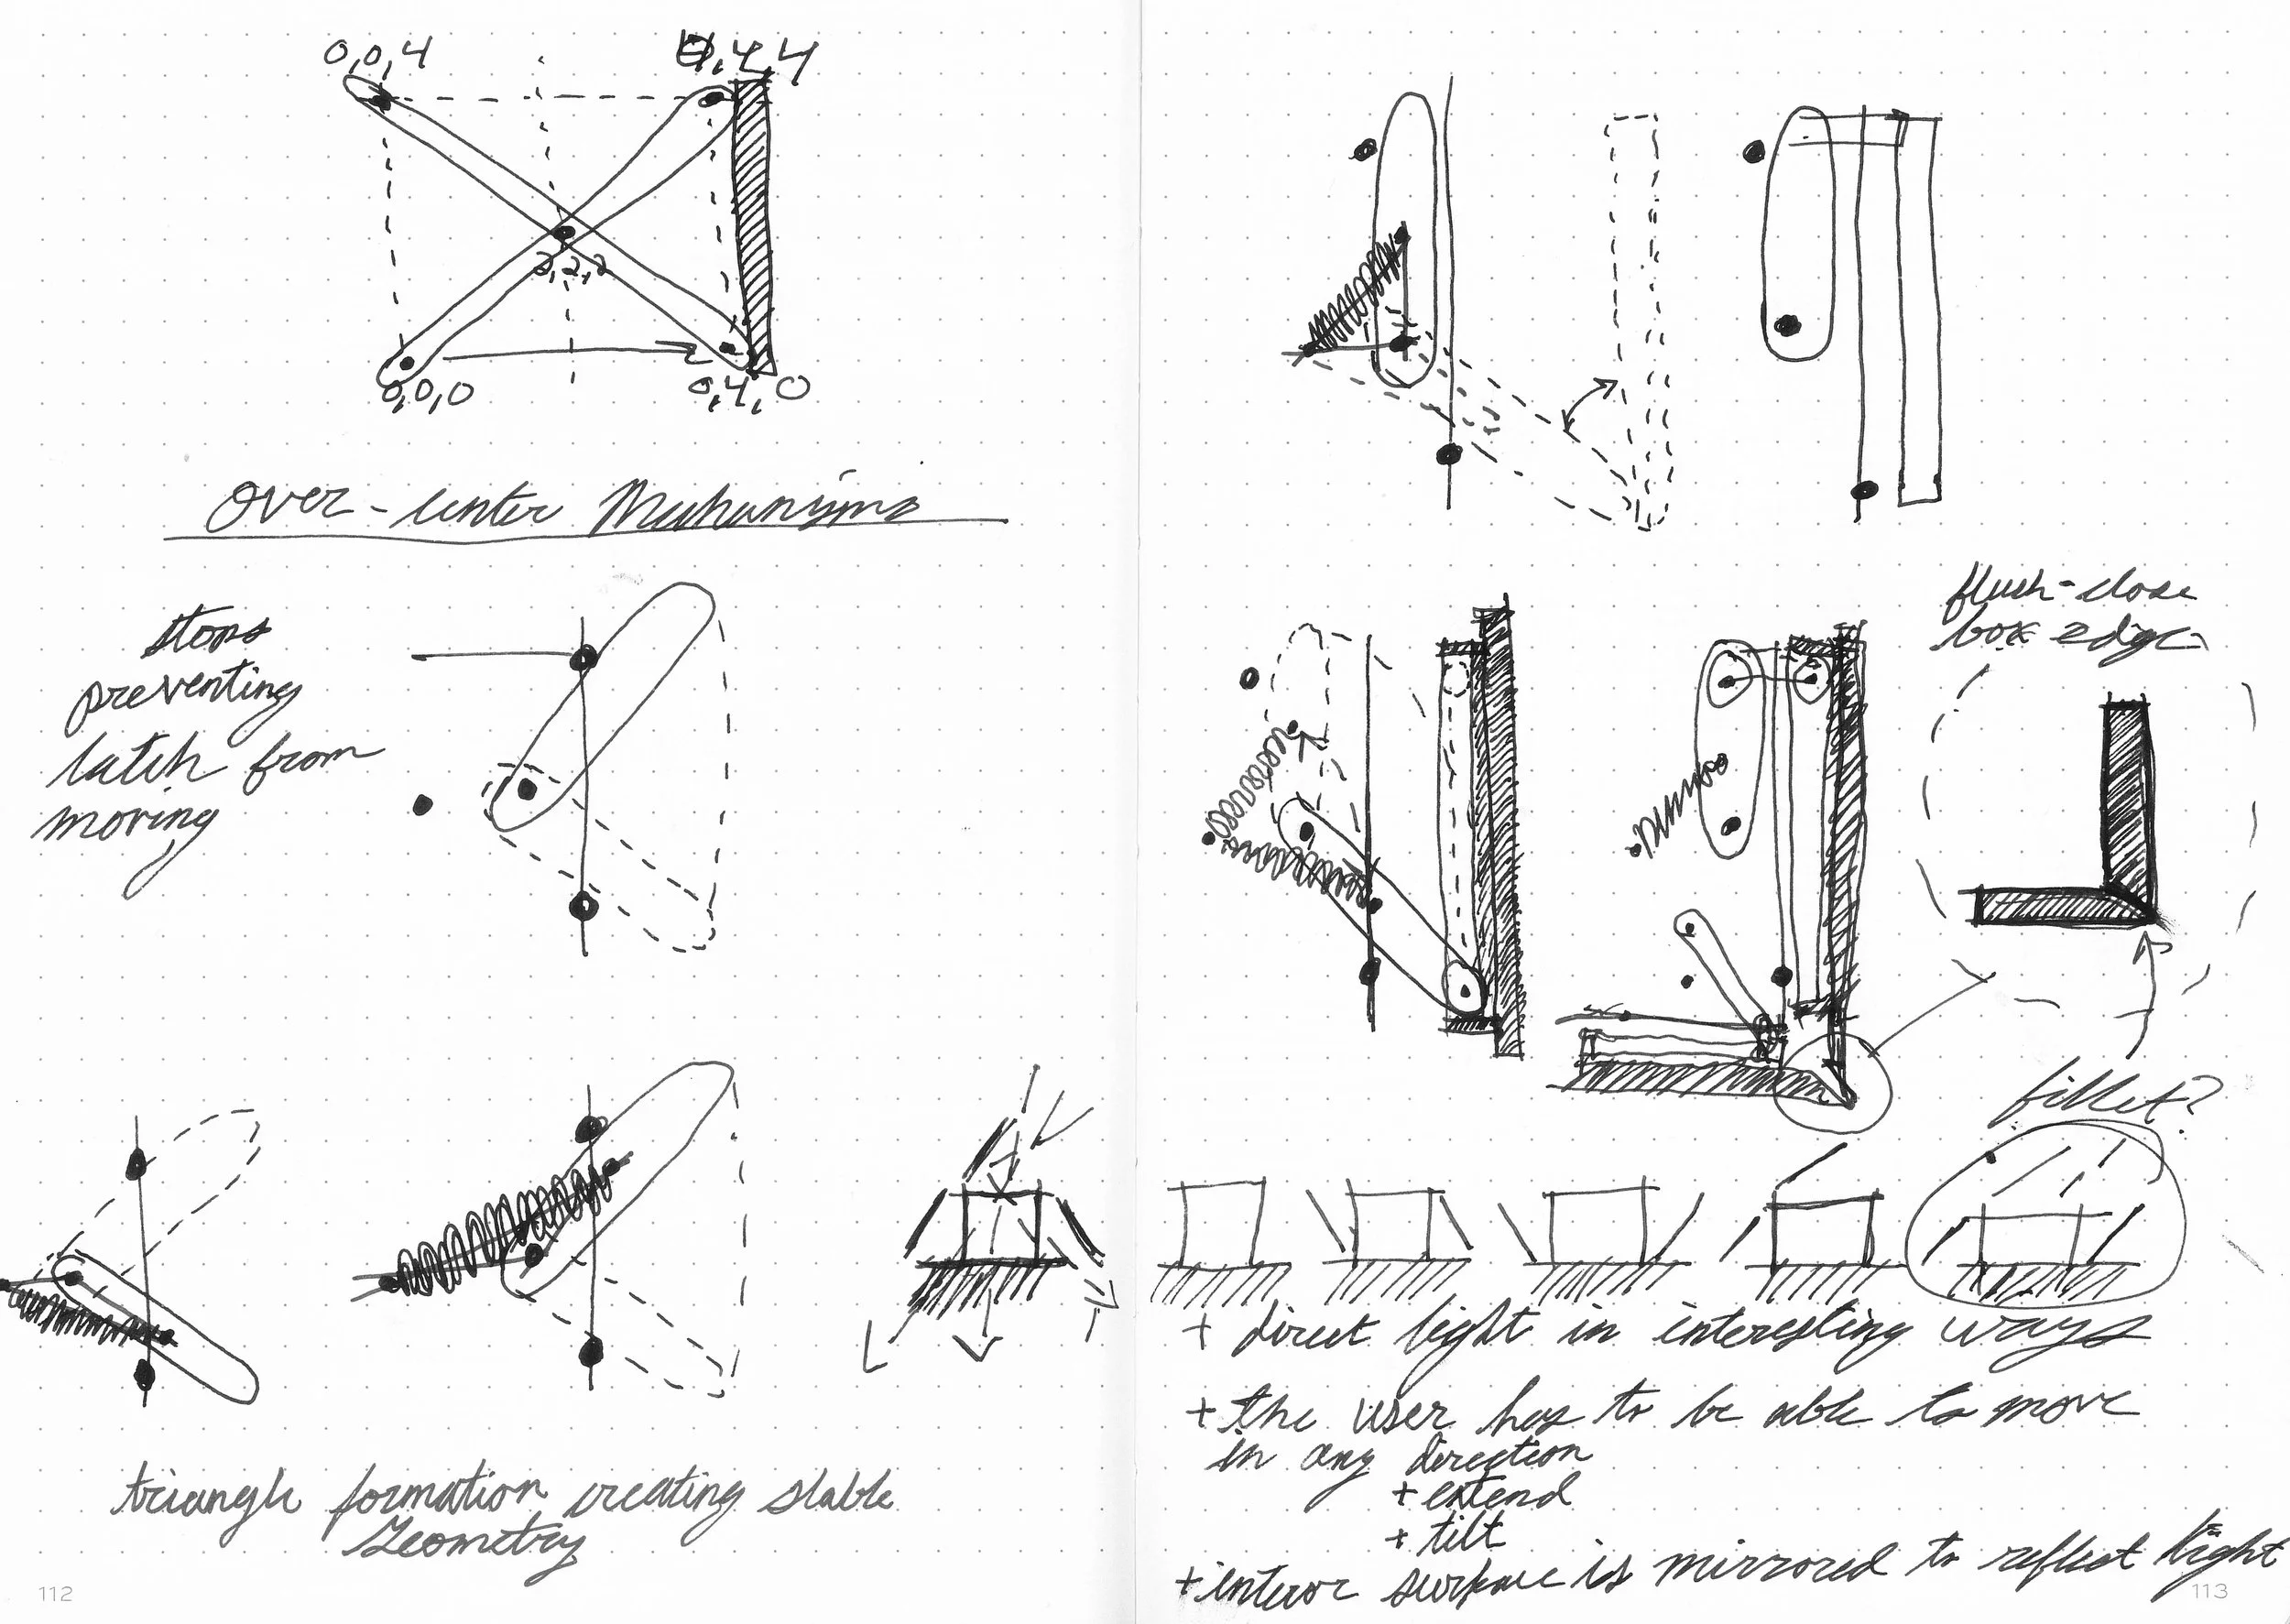 0,0,4
0,4,4
2,2,2
0,0,0
0,4,0
Over-center Mechanisms
stops
preventing
latch from
moving
triangle formation creating stable
Geometry
112
flush-close
box edge
fillet?
+ direct light in interesting ways
+ the user has to be able to move
in any direction
+ extend
+ tilt
+ interior surface is mirrored to reflect light
113